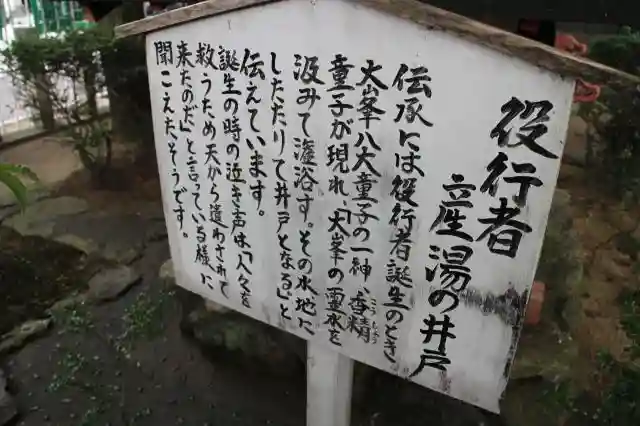 役行者
産湯の井戸
伝承には役行者誕生のとき
大峯八大童子の一神、香精
こうしょう
童子が現れ、「大峯の霊水を
汲みて灌浴す。その水地に
したたりて井戸となる」と
伝えています。
誕生の時の泣き声は「人々を
救うため天からつかわされて
来たのだ」と言っている様に
聞こえたそうです。